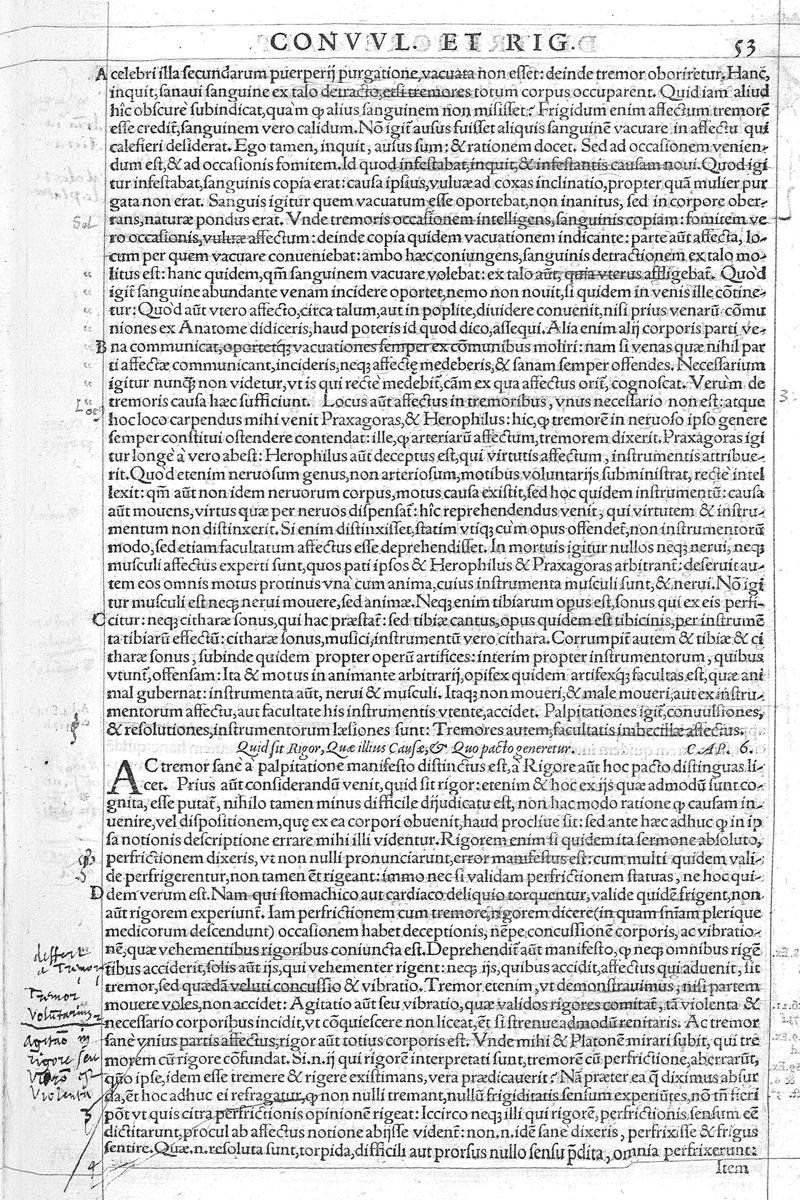 CONVVL. ET RIG. 53
A celebri illa secundarum puerperij purgatione, vacuata non esset: deinde tremor oboriretur. Hanc̃,
inquit, sanaui sanguine ex talo detracto, etsi tremores totum corpus occuparent. Quid iam aliud
hîc obscurè subindicat, quàm ꝙ alius sanguinem non misisset? Frigidum enim affectum tremorẽ
esse credit, sanguinem vero calidum. Nõ igit̃ ausus fuisset aliquis sanguinẽ vacuare in affectu qui
calefieri desiderat. Ego tamen, inquit, ausus sum: & rationem docet. Sed ad occasionem venien-
dum est, & ad occasionis fomitem. Id quod infestabat, inquit, & infestantis causam noui. Quod igi
tur infestabat, sanguinis copia erat: causa ipsius, vuluæ ad coxas inclinatio, propter quã mulier pur
gata non erat. Sanguis igitur quem vacuatum esse oportebat, non inanitus, sed in corpore ober-
rans, naturæ pondus erat. Vnde tremoris occasionem intelligens, sanguinis copiam: fomitem ve
ro occasionis, vuluæ affectum: deinde copia quidem vacuationem indicante: parte aũt affecta, lo-
cum per quem vacuare conueniebat: ambo hæc coniungens, sanguinis detractionem ex talo mo-
litus est: hanc quidem, qm̃ sanguinem vacuare volebat: ex talo aũt, quia vterus affligebat̃. Quòd
igit̃ sanguine abundante venam incidere oportet, nemo non nouit, si quidem in venis ille cõtine-
tur: Quòd aũt vtero affecto, circa talum, aut in poplite, diuidere conuenit, nisi prius venarũ cõmu
niones ex Anatome didiceris, haud poteris id quod dico, assequi. Alia enim alij corporis parti ve-
B na communicat, oportetq; vacuationes semper ex cõmunibus moliri: nam si venas quæ nihil par
ti affectæ communicant, incideris, neq; affectę medeberis, & sanam semper offendes. Necessarium
igitur nunq̃ non videtur, vt is qui rectè medebit̃, cãm ex qua affectus orit̃, cognoscat. Verùm de
tremoris causa hæc sufficiunt. Locus aũt affectus in tremoribus, vnus necessario non est: atque
hoc loco carpendus mihi venit Praxagoras, & Herophilus: hic, ꝙ tremorẽ in neruoso ipso genere
semper constitui ostendere contendat: ille, ꝙ arteriarũ affectum, tremorem dixerit. Praxagoras igi
tur longè à vero abest: Herophilus aũt deceptus est, qui virtutis affectum, instrumentis attribue-
rit. Quòd etenim neruosum genus, non arteriosum, motibus voluntarijs subministrat, rectè intel
lexit: qm̃ aũt non idem neruorum corpus, motus causa existit, sed hoc quidem instrumentũ: causa
aũt mouens, virtus quæ per neruos dispensat̃: hîc reprehendendus venit, qui virtutem & instru-
mentum non distinxerit. Si enim distinxisset, statim vtiq; cùm opus offendet̃, non instrumentorũ
modo, sed etiam facultatum affectus esse deprehendisset. In mortuis igitur nullos neq; nerui, neq;
musculi affectus experti sunt, quos pati ipsos & Herophilus & Praxagoras arbitrant̃: deseruit au-
tem eos omnis motus protinus vnà cum anima, cuius instrumenta musculi sunt, & nerui. Nõ igi
tur musculi est neq; nerui mouere, sed animæ. Neq; enim tibiarum opus est, sonus qui ex eis perfi-
C citur: neq; citharæ sonus, qui hac præstat̃: sed tibiæ cantus, opus quidem est tibicinis, per instrumẽ
ta tibiarũ effectũ: citharæ sonus, musici, instrumentũ vero cithara. Corrumpit̃ autem & tibiæ & ci
tharæ sonus, subinde quidem propter operũ artifices: interim propter instrumentorum, quibus
vtunt̃, offensam: Ita & motus in animante arbitrarij, opifex quidem artifexq; facultas est, quæ ani
mal gubernat: instrumenta aũt, nerui & musculi. Itaq; non moueri, & male moueri, aut ex instru-
mentorum affectu, aut facultate his instrumentis vtente, accidet. Palpitationes igit̃, conuulsiones,
& resolutiones, instrumentorum læsiones sunt: Tremores autem, facultatis imbecillæ affectus.
Quid sit Rigor, Quæ illius Causæ, & Quo pacto generetur. CAP. 6.
AC tremor sanè à palpitatione manifesto distinctus est, à Rigore aũt hoc pacto distinguas li-
cet. Prius aũt considerandũ venit, quid sit rigor: etenim & hoc ex ijs quæ admodũ sunt co-
gnita, esse putat̃, nihilo tamen minus difficile dijudicatu est, non hac modo ratione ꝙ causam in-
uenire, vel dispositionem, quę ex ea corpori obuenit, haud procliue sit: sed ante hæc adhuc ꝙ in ip
sa notionis descriptione errare mihi illi videntur. Rigorem enim si quidem ita sermone absoluto,
perfrictionem dixeris, vt non nulli pronunciarunt, error manifestus est: cum multi quidem vali-
de perfrigerentur, non tamen ẽt rigeant: immo nec si validam perfrictionem statuas, ne hoc qui-
D dem verum est. Nam qui stomachico aut cardiaco deliquio torquentur, valide quidẽ frigent, non
aũt rigorem experiunt̃. Iam perfrictionem cum tremore, rigorem dicere (in quam sñiam plerique
medicorum descendunt) occasionem habet deceptionis, nẽpe concussionẽ corporis, ac vibratio-
nẽ, quæ vehementibus rigoribus coniuncta est. Deprehendit̃ aũt manifesto, ꝙ neq; omnibus rigẽ
tibus acciderit, solis aũt ijs, qui vehementer rigent: neq; ijs, quibus accidit, affectus qui aduenit, sit
tremor, sed quædã veluti concussio & vibratio. Tremor etenim, vt demonstrauimus, nisi partem
mouere voles, non accidet: Agitatio aũt seu vibratio, quæ validos rigores comitat̃, tã violenta &
necessario corporibus incidit, vt cõquiescere non liceat, ẽt si strenue admodũ renitaris. Ac tremor
sanè vnius partis affectus, rigor aũt totius corporis est. Vnde mihi & Platonẽ mirari subit, qui tre
morẽm cũ rigore cõfundat. Si.n.ij qui rigorẽ interpretati sunt, tremorẽ cũ perfrictione, aberrarũt,
quõ ipse, idem esse tremere & rigere existimans, vera prædicauerit? Nã præter ea q̃ diximus absur
da, ẽt hoc adhuc ei refragatur, ꝙ non nulli tremant, nullũ frigiditatis sensum experiũtes, nõ tñ fieri
põt vt quis citra perfrictionis opinionẽ rigeat: Iccirco neq; illi qui rigorẽ, perfrictionis sensum eẽ
dictitarunt, procul ab affectus notione abijsse vident̃: non.n. idẽ sane dixeris, perfrixisse & frigus
sentire. Quæ.n. resoluta sunt, torpida, difficili aut prorsus nullo sensu p̃dita, omnia perfrixerunt:
Item
differt
a Tremor
Tremor
voluntarius
violenta